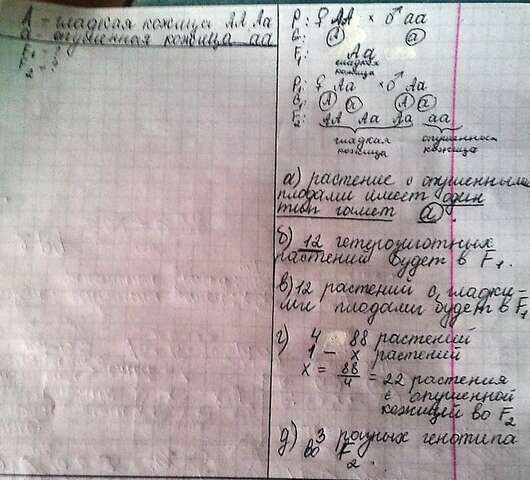 A - гладкая кожица AA, Aa
a - опушенная кожица aa
F₁ - ?
F₂ - ?
P: ♀ AA × ♂ aa
G: A a
F₁: Aa
гладкая
кожица
P₁: ♀ Aa × ♂ Aa
G₁: A a A a
F₂: AA Aa Aa aa
гладкая кожица
опушенная кожица
а) растение с опушенными
плодами имеет один
тип гамет a.
б) 12 гетерозиготных
растений будет в F₁.
в) 12 растений с гладки-
ми плодами будет в F₁
г) 4 - 88 растений
1 - x растений
x = 88/4 = 22 растения
с опушенной
кожицей во F₂
д) 3 разных генотипа
во F₂.